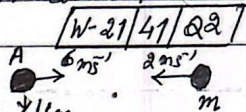 W-21/41/Q2
A 6 ms⁻¹ 2 ms⁻¹
m